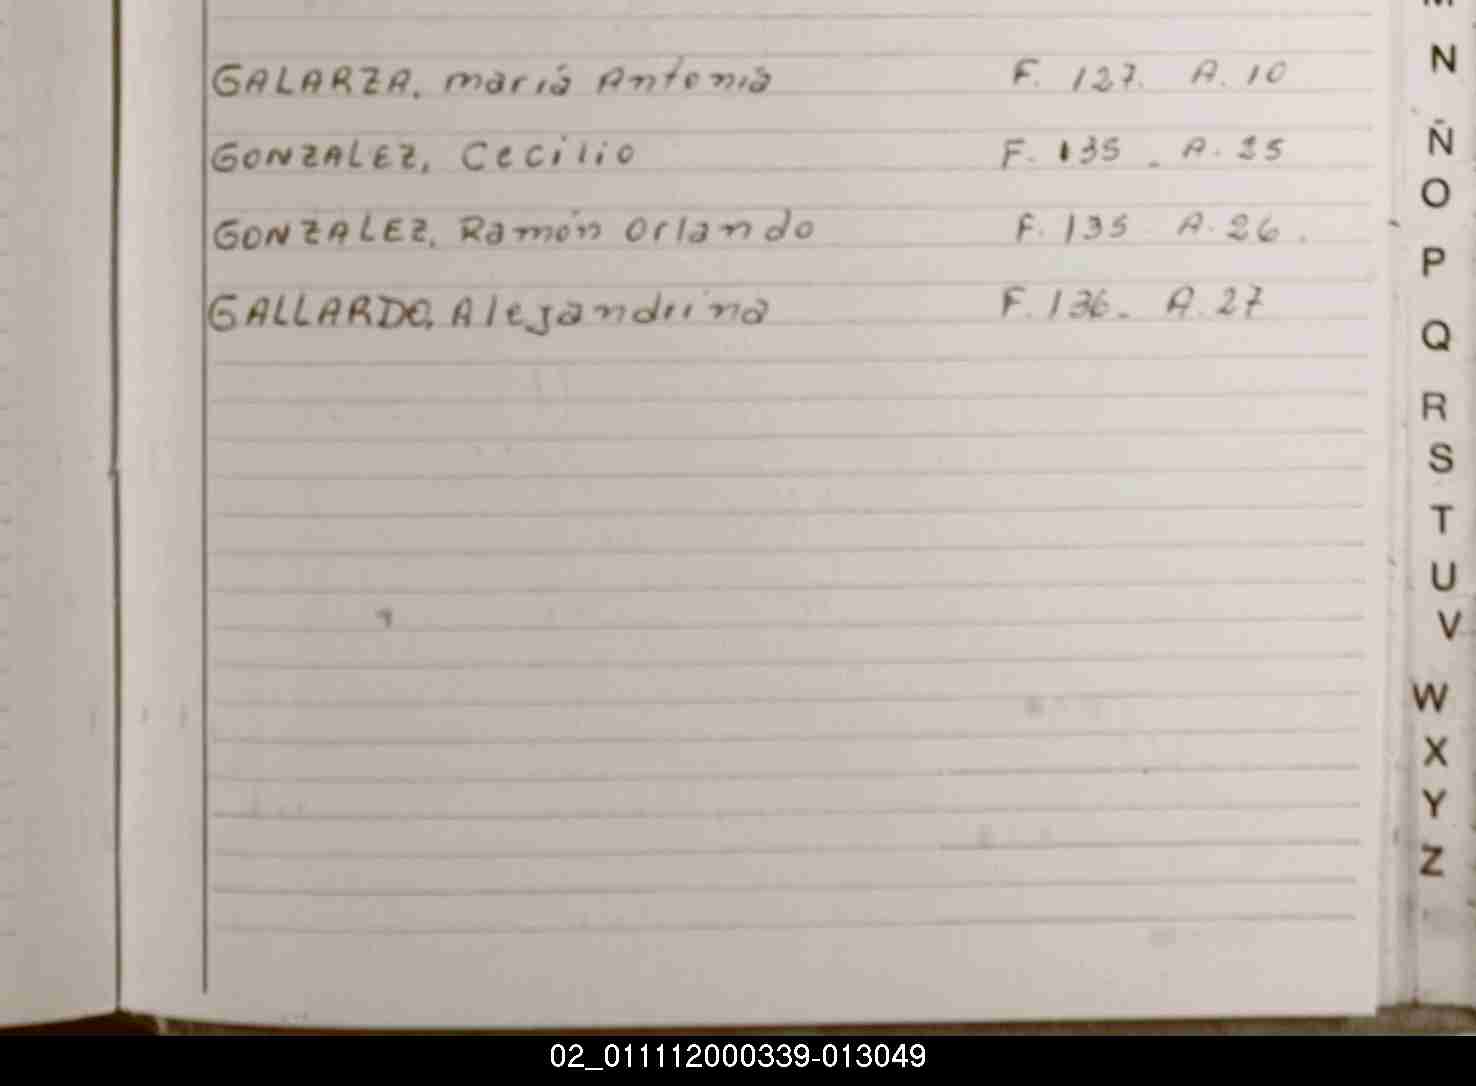 GALARZA, maria Antonia F. 127. A. 10
GONZALEZ, Cecilio F. 135 - A. 25
GONZALEZ, Ramón Orlando F. 135 A. 26.
GALLARDO, Alejandrina F. 136 - A. 27
M
N
Ñ
O
P
Q
R
S
T
U
V
W
X
Y
Z
02_011112000339-013049